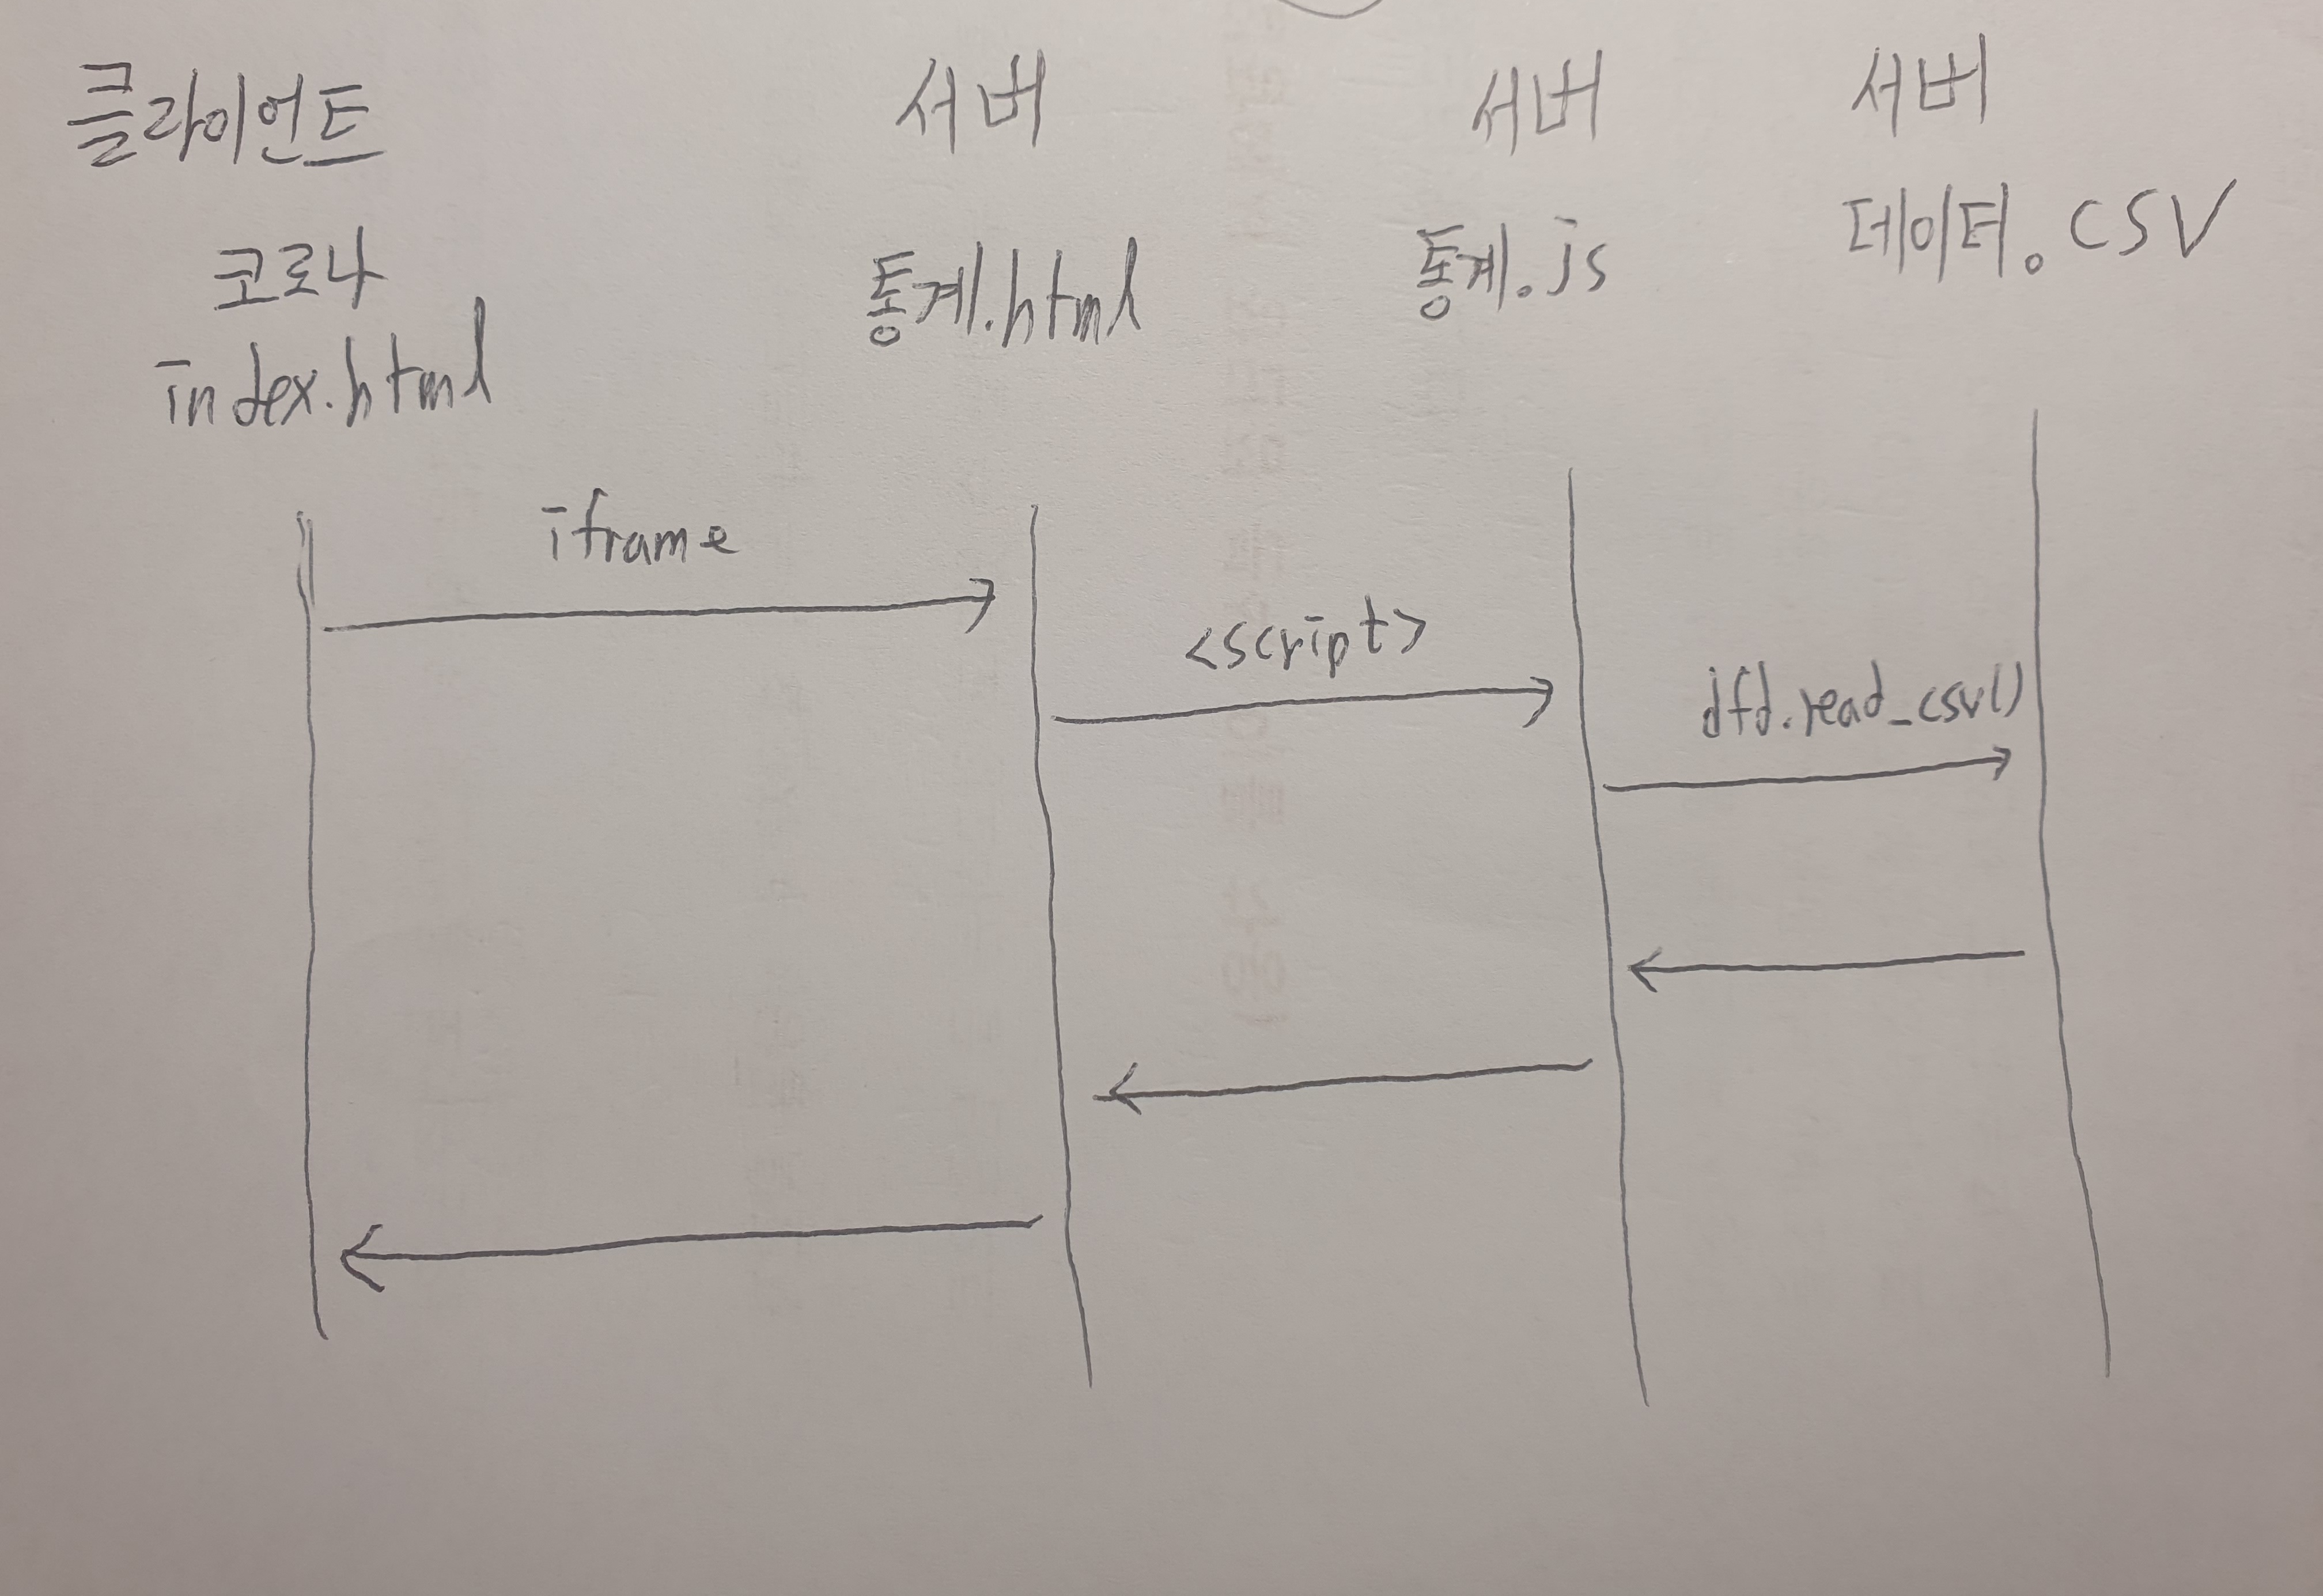 클라이언트
코로나
index.html
서버
통계.html
서버
통계.js
서버
데이터.csv
iframe
<script>
dfd.read_csv()